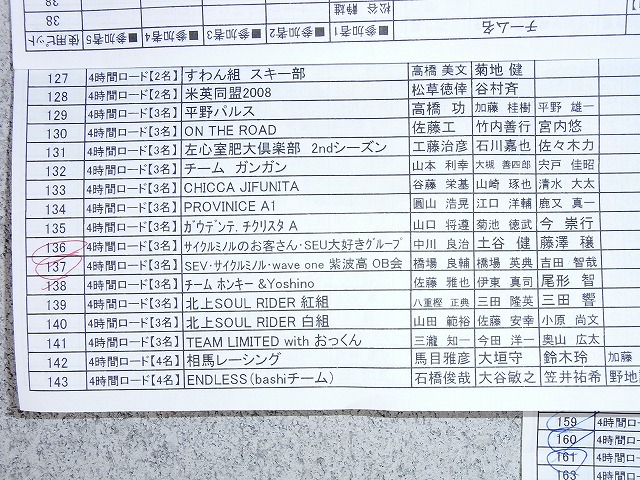 38
松谷 静雄
使用ピット ■参加者5 ■参加者4 ■参加者3 ■参加者2 ■参加者1 チーム名
127 4時間ロード【2名】 すわん組 スキー部 高橋 美文 菊地 健
128 4時間ロード【2名】 米英同盟2008 松草徳倖 谷村斉
129 4時間ロード【3名】 平野パルス 高橋 功 加藤 桂樹 平野 雄一
130 4時間ロード【3名】 ON THE ROAD 佐藤工 竹内善行 宮内悠
131 4時間ロード【3名】 左心室肥大倶楽部 2ndシーズン 工藤治彦 石川嘉也 佐々木力
132 4時間ロード【3名】 チーム ガンガン 山本 利幸 大槻 善四郎 宍戸 佳昭
133 4時間ロード【3名】 CHICCA JIFUNITA 谷藤 栄基 山崎 琢也 清水 大太
134 4時間ロード【3名】 PROVINICE A1 圓山 浩晃 江口 洋輔 鹿又 真一
135 4時間ロード【3名】 ガウデンテ.チクリスタ A 山口 将遵 菊池 徳武 今 崇行
136 4時間ロード【3名】 サイクルミノルのお客さん・SEU大好きグループ 中川 良治 土谷 健 藤澤 穣
137 4時間ロード【3名】 SEV・サイクルミノル・wave one 紫波高 OB会 橋場 良輔 橋場 英典 吉田 智哉
138 4時間ロード【3名】 チーム ホンキー &Yoshino 佐藤 雅也 伊東 真司 尾形 智
139 4時間ロード【3名】 北上SOUL RIDER 紅組 八重樫 正典 三田 隆英 三田 響
140 4時間ロード【3名】 北上SOUL RIDER 白組 山田 範裕 佐藤 安幸 小原 尚文
141 4時間ロード【3名】 TEAM LIMITED with おっくん 三瀧 知一 今田 洋一 奥山 広太
142 4時間ロード【4名】 相馬レーシング 馬目雅彦 大垣守 鈴木玲 加藤
143 4時間ロード【4名】 ENDLESS(bashiチーム) 石橋俊哉 大谷敏之 笠井祐希 野地
159 4時間ロ
160 4時間ロ
161 4時間ロ
163 4時間ロ